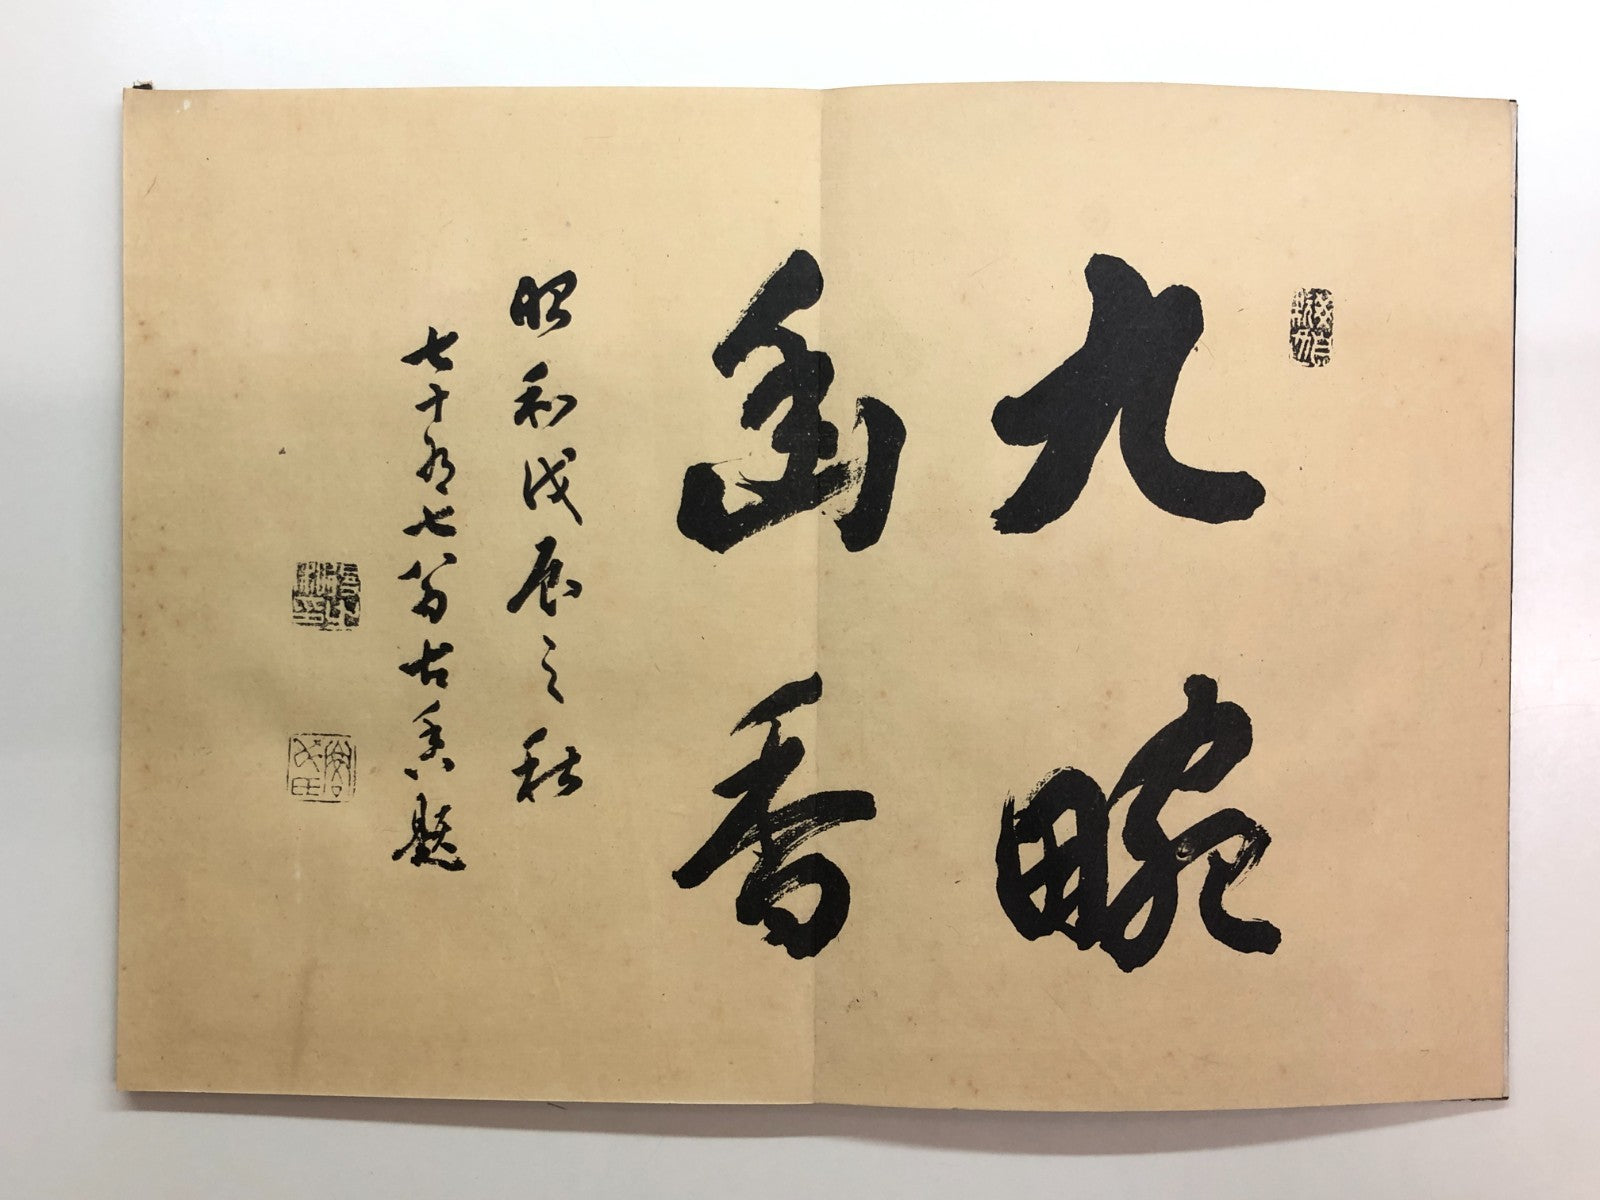 九畹
幽香
昭和戊辰之秋
七十有七翁古香題